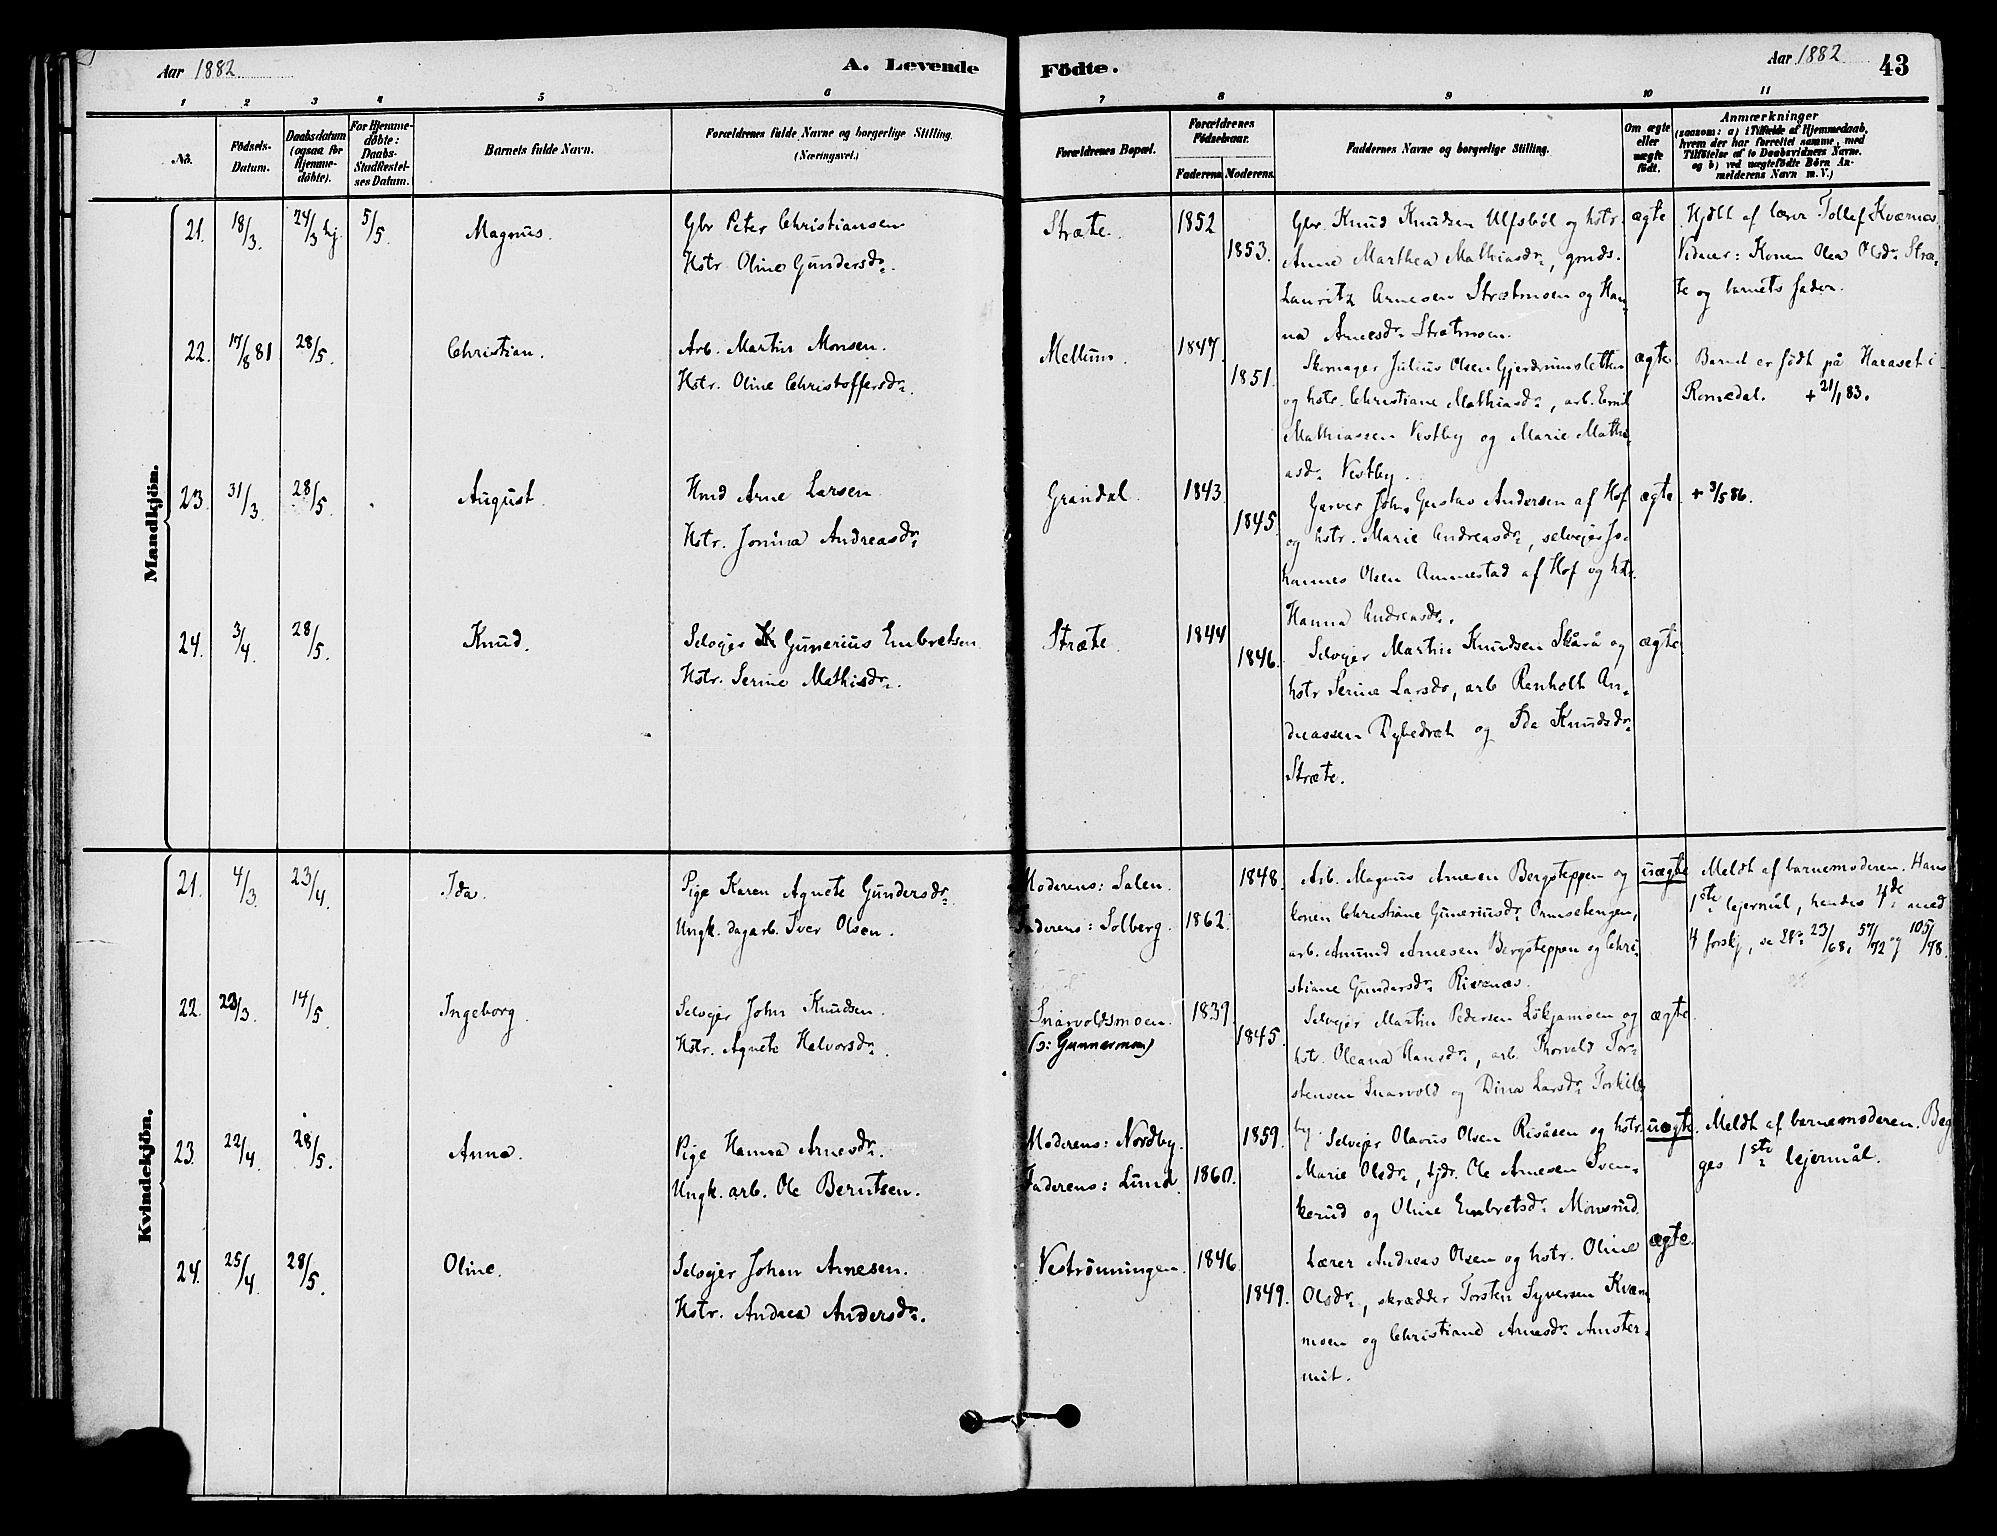 Aar 1882
A. Levende
Födte.
Aar 1882
43
1 2 3 4 5 6 7 8 9 10 11
No.
Födsels-
Datum.
Daabsdatum
(ogsaa for
Hjemme-
döbte).
For Hjemme-
döbte:
Daabs-
Stadfæstel-
ses Datum.
Barnets fulde Navn.
Forældrenes fulde Navne og borgerlige Stilling.
(Næringsvei.)
Forældrenes Bopæl.
Forældrenes
Födselsaar.
Faderens. Moderens.
Faddernes Navne og borgerlige Stilling.
Om ægte
eller
uægte
födt.
Anmærkninger
(saasom: a) i Tilfælde af Hjemmedaab,
hvem der har forrettet samme, med
Tilföielse af to Daabsvidners Navne.
og b) ved uægtefödte Börn An-
melderens Navn m. V.)
Mandkjön.
21. 18/3. 24/3 hj. 5/5 Magnus.
Gbr Peter Christiansen
Hstr Oline Gundersdr.
Stræte. 1852 1853.
Gbr. Knud Knudsen Ulfsböl og hstr.
Anne Marthea Mathiasdr, gmds.
Lauritz Arnesen Strætmoen og Han-
na Arnesdr Strætmoen.
ægte
Hjdbt af lærer Tollef Kværnæs.
Vidner: Konen Olea Olsdr Stræ-
te og barnets fader.
22. 17/8 81 28/5. Christian.
Arb. Martin Monsen.
Hstr. Oline Christoffersdr.
Mellum. 1847. 1851.
Skomager Julius Olsen Gjerdrumsletten
og hstr. Christiane Mathiasdr, arb. Emil
Mathiassen Vestby og Marie Mathi-
asdr Vestby.
ægte.
Barnet er födt på Haraset i
Romedal. + 21/1 83.
23. 31/3. 28/5. August.
Hmd Arne Larsen
Hstr. Jonina Andreasdr
Grandal. 1843 1845.
Garver Joh. Gustav Andersen af Hof
og hstr. Marie Andreasdr, selvejer Jo-
hannes Olsen Ammestad af Hof og hstr.
Hanna Andreasdr.
ægte.
+ 3/5 86.
24. 3/4. 28/5. Knud.
Selvejer Gunerius Embretsen
Hstr. Serine Mathisdr.
Stræte. 1844 1846.
Selvejer Martin Knudsen Skårå og
hstr Serine Larsdr, arb Renholt An-
dreassen Dybedræt og Ida Knudsdr
Stræte.
ægte
Kvindekjön.
21. 4/3. 23/4. Ida.
Pige Karen Agnete Gundersdr.
Ungk. dagarb. Iver Olsen.
Moderens: Galen.
Faderens: Solberg. 1862. 1848.
Arb. Magnus Arnesen Bergsteppen og
konen Christiane Guneriusdr Ormsetengen,
arb. Amund Arnesen Bergsteppen og Chri-
stiane Gundersdr Risenæs.
uægte
Meldt af barnemoderen. Hans
1ste lejermål, hendes 4de med
4 forskj, se 23/68, 57/72 og 105/78.
22. 23/3. 14/5. Ingeborg.
Selvejer John Knudsen.
Hstr. Agnete Halvorsdr.
Snarvoldsmoen. 1839. 1845.
(ɔ: Gunnarmoen)
Selvejer Martin Pedersen Lökjamoen og
hstr. Oleana Hansdr, arb. Thorvald Tor-
stensen Snarvold og Dina Larsdr Torkils-
by.
ægte.
23. 22/4. 28/5. Anna.
Pige Hanna Arnesdr.
Ungk. arb. Ole Berntsen.
Moderens: Nordby.
Faderens: Lund. 1860. 1859.
Selvejer Olavus Olsen Risåsen og hstr.
Marie Olsdr, tjdr. Ole Arnesen Sven-
kerud og Oline Embretsdr Monsrud.
uægte.
Meldt af barnemoderen. Beg-
ges 1ste lejermål.
24. 25/4. 28/5. Oline.
Selvejer Johan Arnesen.
Hstr. Andrea Andersdr.
Veströnningen. 1846. 1849.
Lærer Andreas Olsen og hstr. Oline
Olsdr, skrædder Torsten Syversen Kværn-
moen og Christiane Arnesdr Amster-
mit.
ægte.